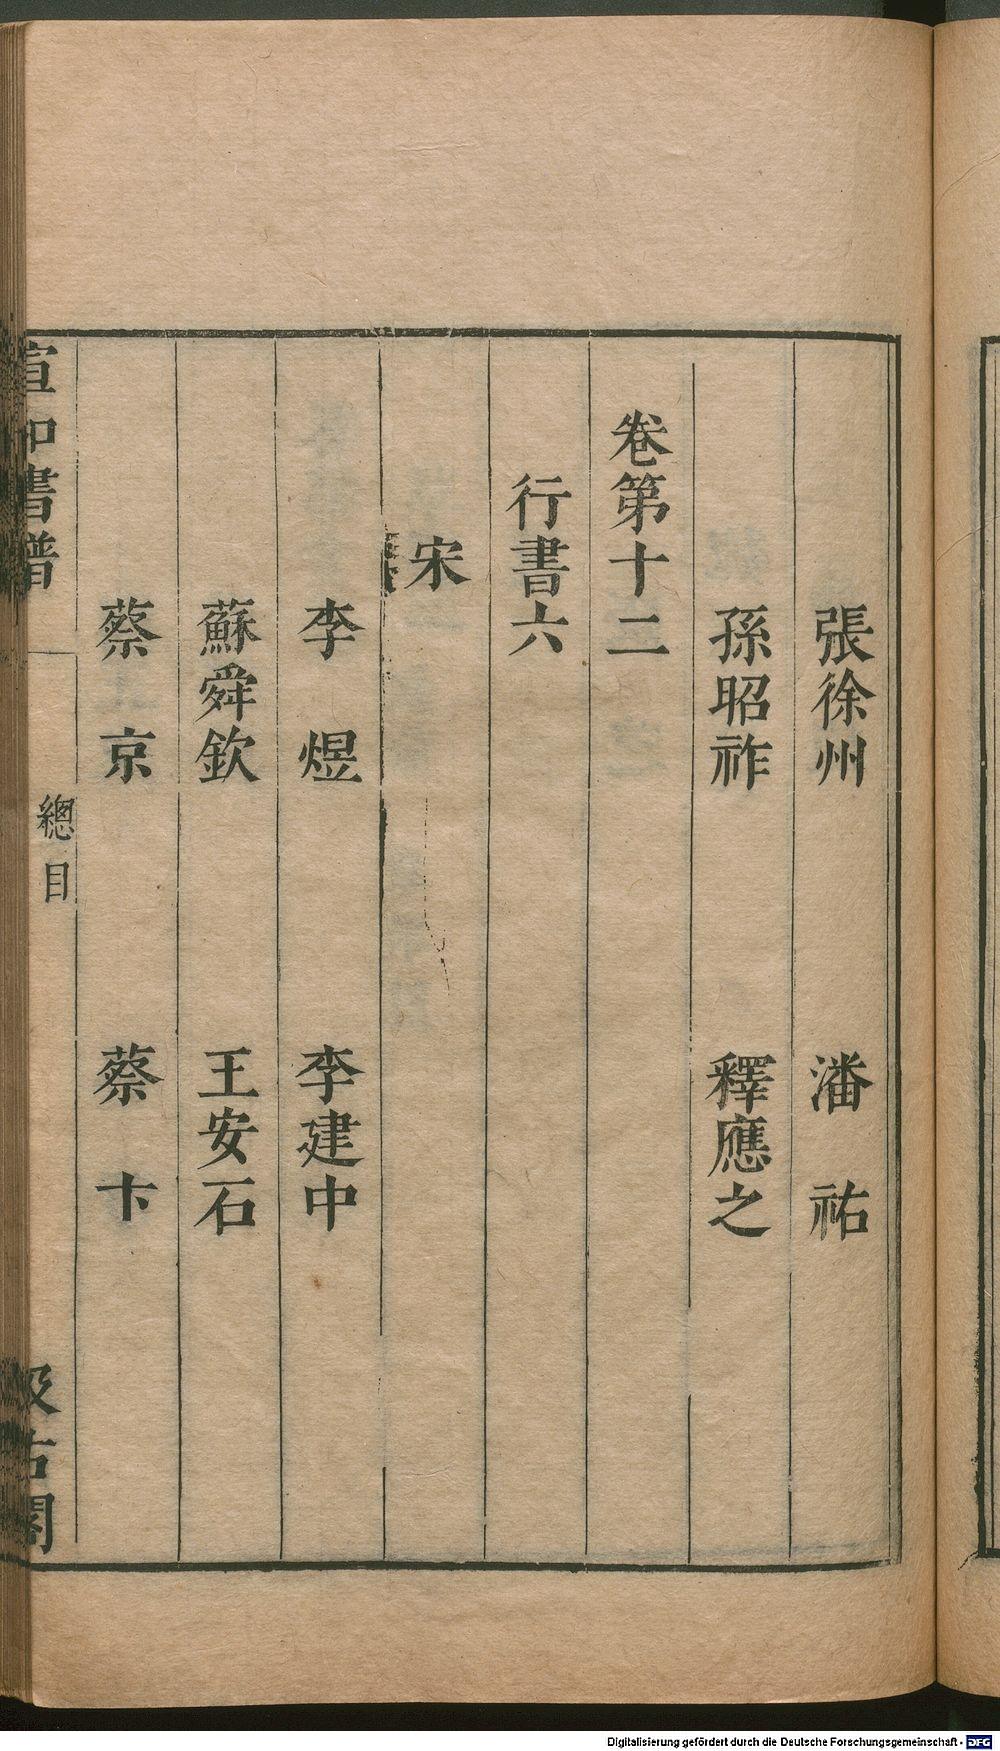 張徐州 潘祐
孫昭祚 釋應之
卷第十二
行書六
宋
李煜 李建中
蘇舜欽 王安石
蔡京 蔡卞
宣和書譜 總目 汲古閣
Digitalisierung gefördert durch die Deutsche Forschungsgemeinschaft - DFG